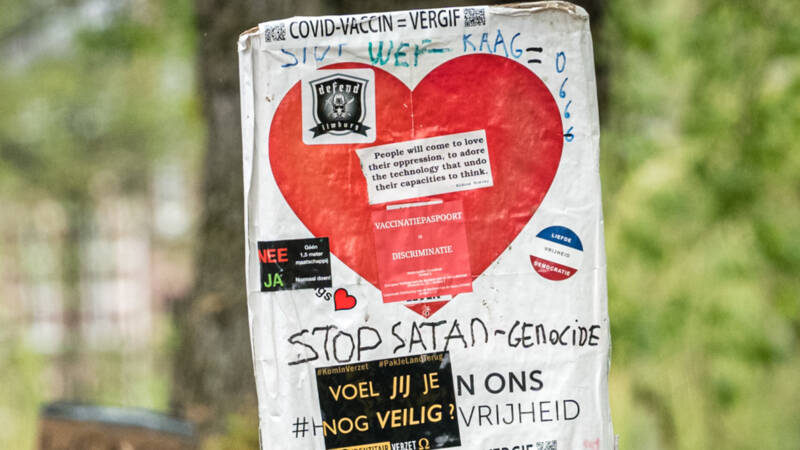 COVID-VACCIN = VERGIF
STOP WEF - KAAG = 0666
defend
limburg
People will come to love
their oppression, to adore
the technology that undo
their capacities to think.
VACCINATIEPASPOORT
=
DISCRIMINATIE
LIEFDE
VRIJHEID
DEMOCRATIE
NEE Géén
1,5 meter
maatschappij
JA Normaal doen!
STOP SATAN-GENOCIDE
#KominVerzet #PakJeLandTerug
VOEL JIJ JE
NOG VEILIG?
N ONS
#H VRIJHEID
VERZET Ω
VERGIF